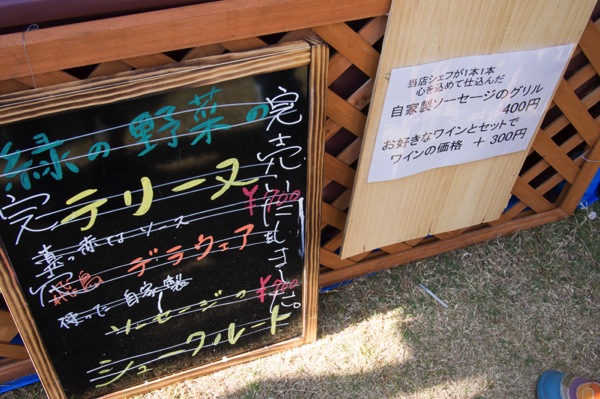 緑の野菜の
テリーヌ
¥700
デラウェア
使った自家製
ソーセージの
¥700
シュークルート
完売
完売いたしました。
当店シェフが1本1本
心を込めて仕込んだ
自家製ソーセージのグリル
400円
お好きなワインとセットで
ワインの価格 + 300円